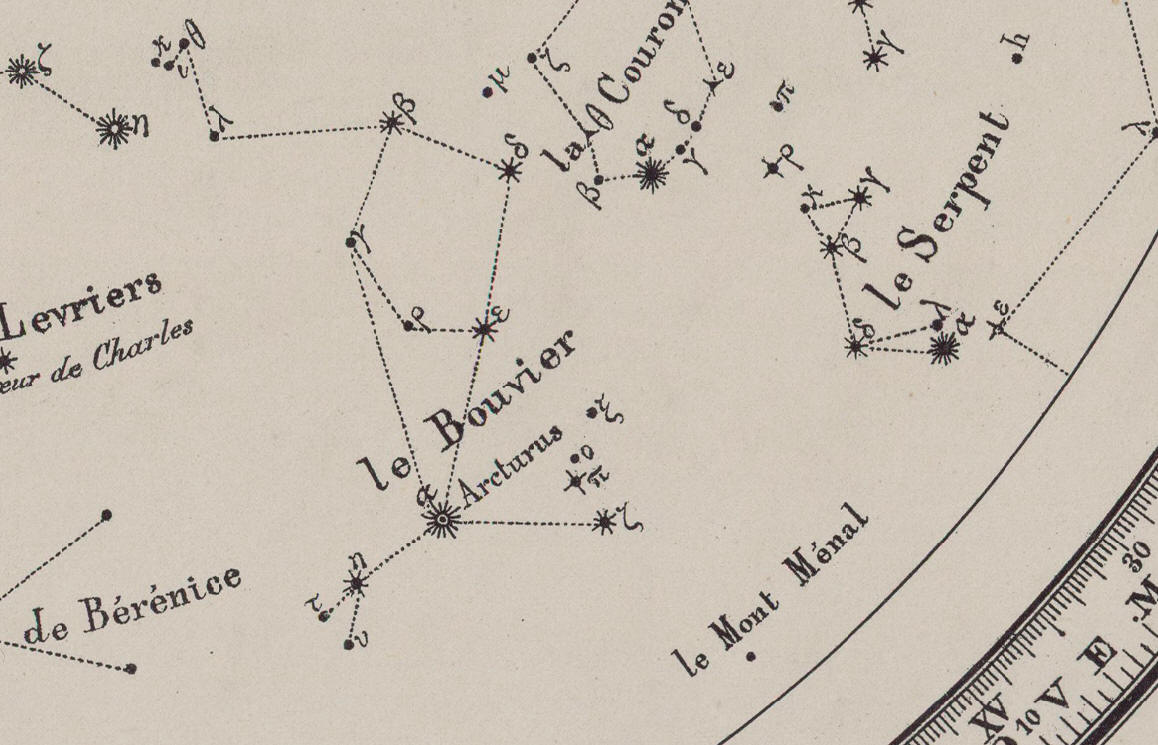 ζ
η
θ
κ
ι
λ
β
μ
ζ
la Couron
θ
ε
δ
α
γ
β
δ
γ
ρ
ε
π
ρ
γ
h
λ
κ
γ
β
le Serpent
δ
λ
α
ε
Levriers
œur de Charles
le Bouvier
α
Arcturus
ξ
ο
π
ζ
η
τ
υ
de Bérénice
le Mont Ménal
30
XV
10
V E
M